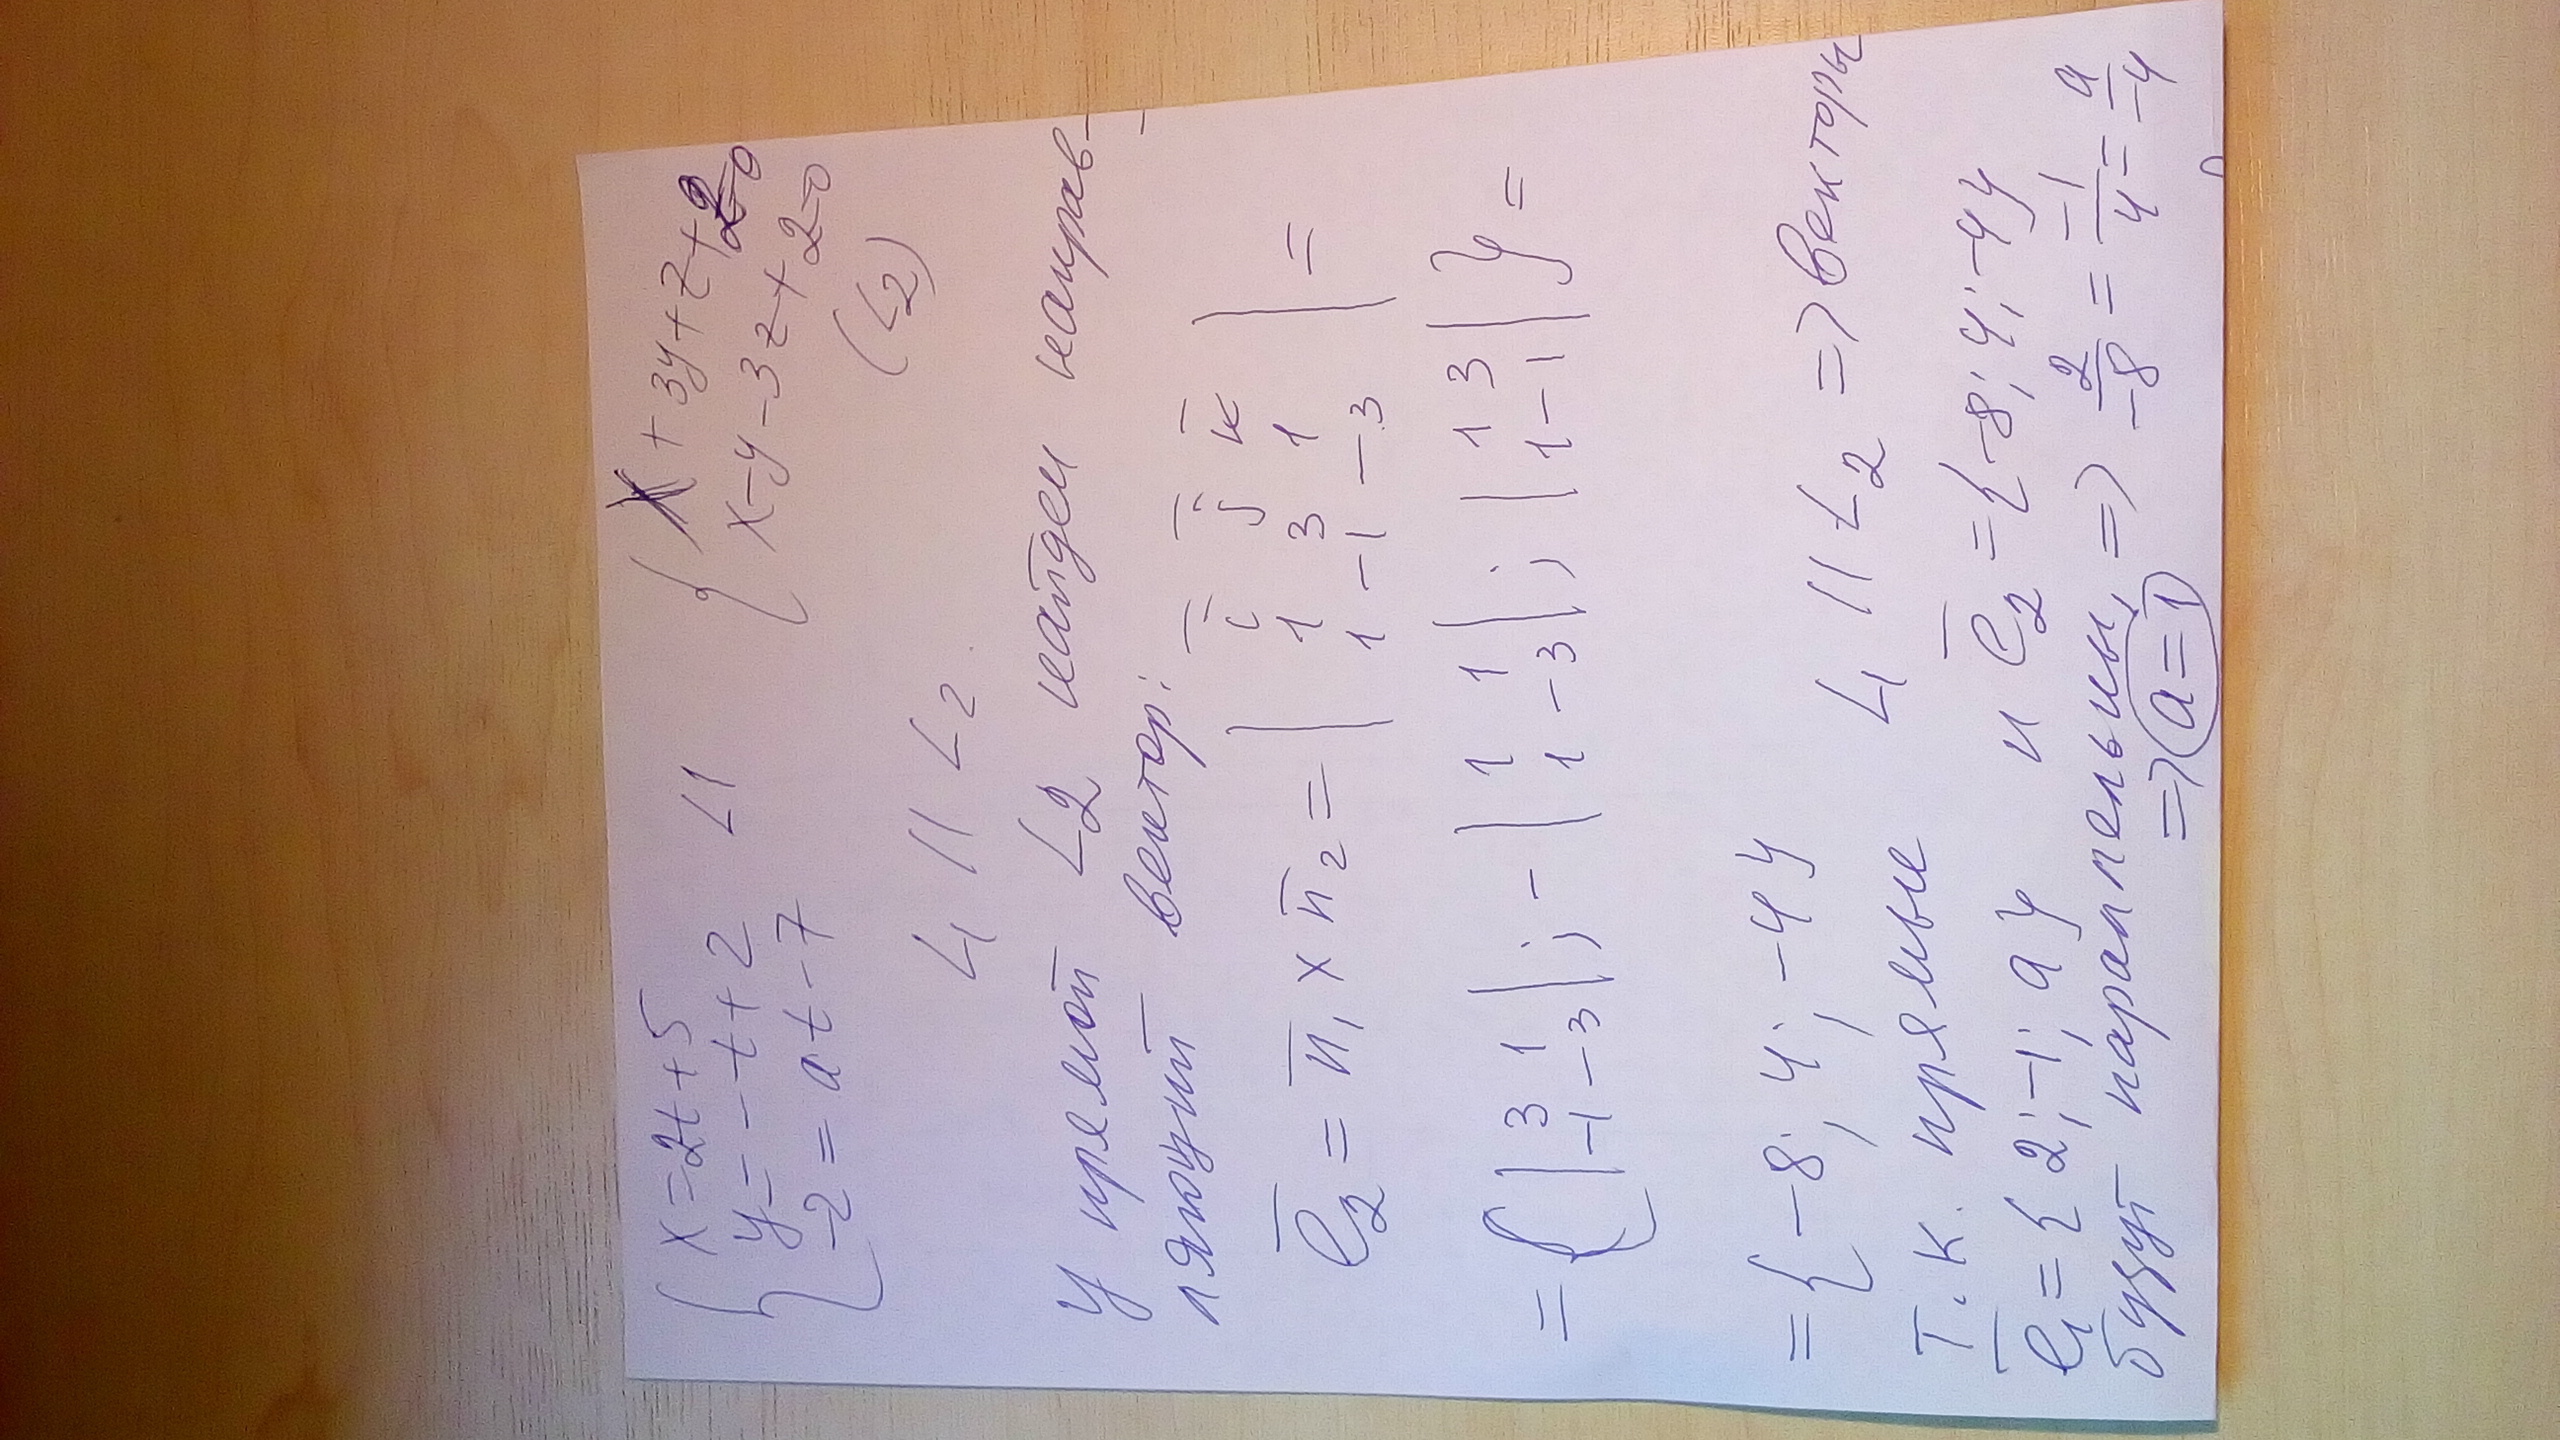 { x = 2t + 5
y = - t + 2    L1
-2 = at - 7
{ x + 3y + z + 2=0
x - y - 3z + 2=0
(L2)
L1 || L2
У прямой L2 найдем направ-
ляющий вектор:
l̄2 = n̄1 x n̄2 = | ī j̄ k̄
1 3 1
1 -1 -3 | =
= { | 3 1
-1 -3 | ; - | 1 1
1 -3 | ; | 1 3
1 -1 | } =
= { -8; 4; -4 }
Т.к. прямые L1 || L2 => векторы
l̄1 = { 2; -1; a } и l̄2 = { -8; 4; -4 }
будут параллельны, => 2/-8 = -1/4 = a/-4
=> a = 1